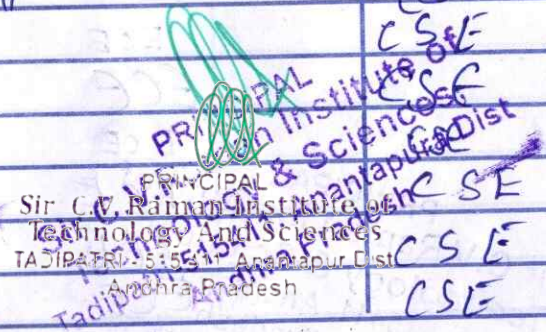 CSE
CSE
CSE
CSE
CSE
CSE
PRINCIPAL
Institute of
& Sciences
Anantapur Dist
Andhra Pradesh
PRINCIPAL
Sir C.V. Raman Institute of
Technology And Sciences
TADIPATRI - 515 411 Anantapur Dist
Andhra Pradesh